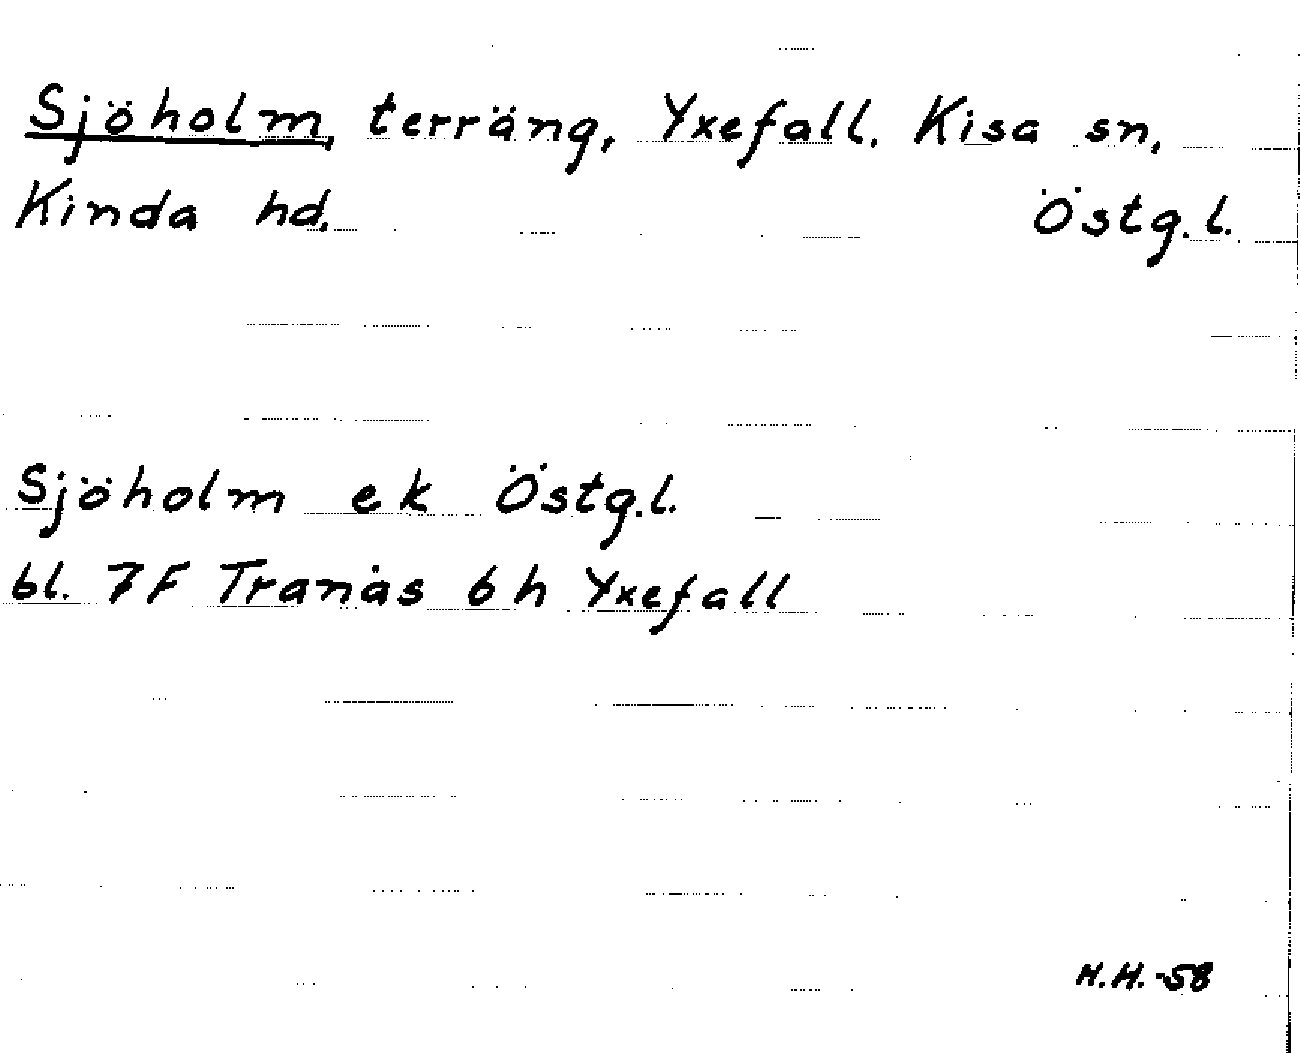 Sjöholm, terräng, Yxefall. Kisa sn,
Kinda hd. Östg.l.
Sjöholm ek Östg.l.
bl. 7F Tranås 6h Yxefall
H.H.-58